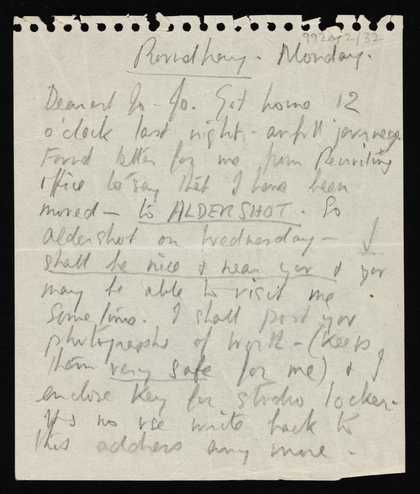 992.09/2/32
Roundhay. Monday.
Dearest Jo-Jo. Got home 12
o'clock last night - awful journey.
Found letter for me from Recruiting
Office to say that I have been
moved - to ALDERSHOT. Go
aldershot on Wednesday - I
shall be nice & near you & you
may be able to visit me
some time. I shall post you
photographs of work - (keep
them very safe for me) & I
enclose key for studio locker.
Its no use write back to
this address any more.